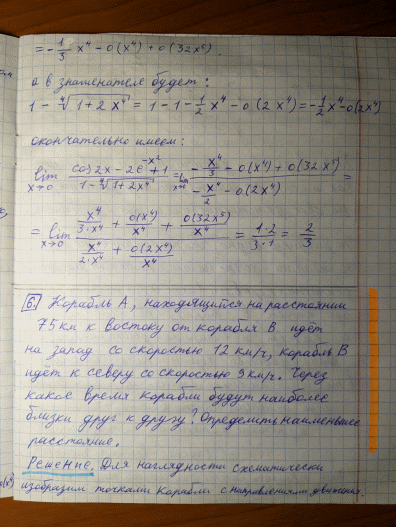 = -1/3 x⁴ - o(x⁴) + o(32x⁵).
а в знаменателе будет:
1 - ⁴√(1+2x⁴) = 1 - 1 - 1/2 x⁴ - o(2x⁴) = -1/2 x⁴ - o(2x⁴)
окончательно имеем:
lim x→0 (cos2x - 2e^(-x²) + 1)/(1 - ⁴√(1+2x⁴)) = lim x→0 (-x⁴/3 - o(x⁴) + o(32x⁵))/(-x⁴/2 - o(2x⁴)) =
= lim x→0 (x⁴/(3·x⁴) + o(x⁴)/x⁴ + o(32x⁵)/x⁴)/(x⁴/(2x⁴) + o(2x⁴)/x⁴) = (1·2)/(3·1) = 2/3
6. Корабль А, находящийся на расстоянии
75 км к востоку от корабля В идёт
на запад со скоростью 12 км/ч, корабль В
идёт к северу со скоростью 9 км/ч. Через
какое время корабли будут наиболее
близки друг к другу? Определить наименьшее
расстояние.
Решение. Для наглядности схематически
изобразим точками корабли с направлениями движения.